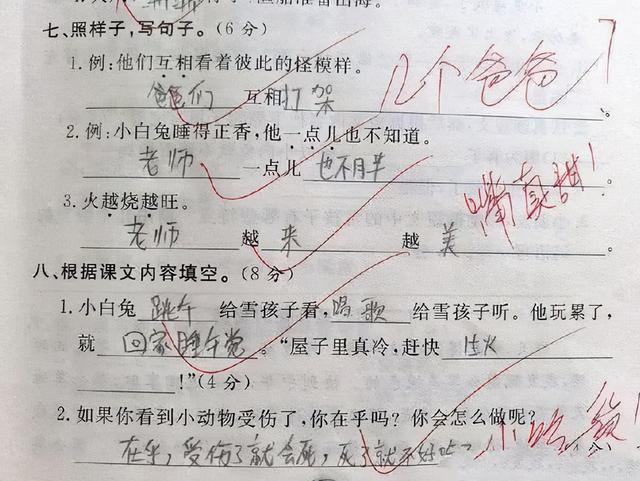 七、照样子，写句子。(6分)
1. 例:他们互相看着彼此的怪模样。
爸爸们 互相打架 。 几个爸爸？
2. 例:小白兔睡得正香,他一点儿也不知道。
老师 一点儿 也不胖 。
嘴真甜！
3. 火越烧越旺。
老师 越 来 越 美 。
八、根据课文内容填空。(8分)
1. 小白兔 跳午 给雪孩子看, 唱歌 给雪孩子听。他玩累了,
就 回家睡午觉 。“屋子里真冷,赶快 生火
!”(4分)
2. 如果你看到小动物受伤了,你在乎吗?你会怎么做呢?
在乎,受伤了就会死,死了就不好吃了 小吃货！